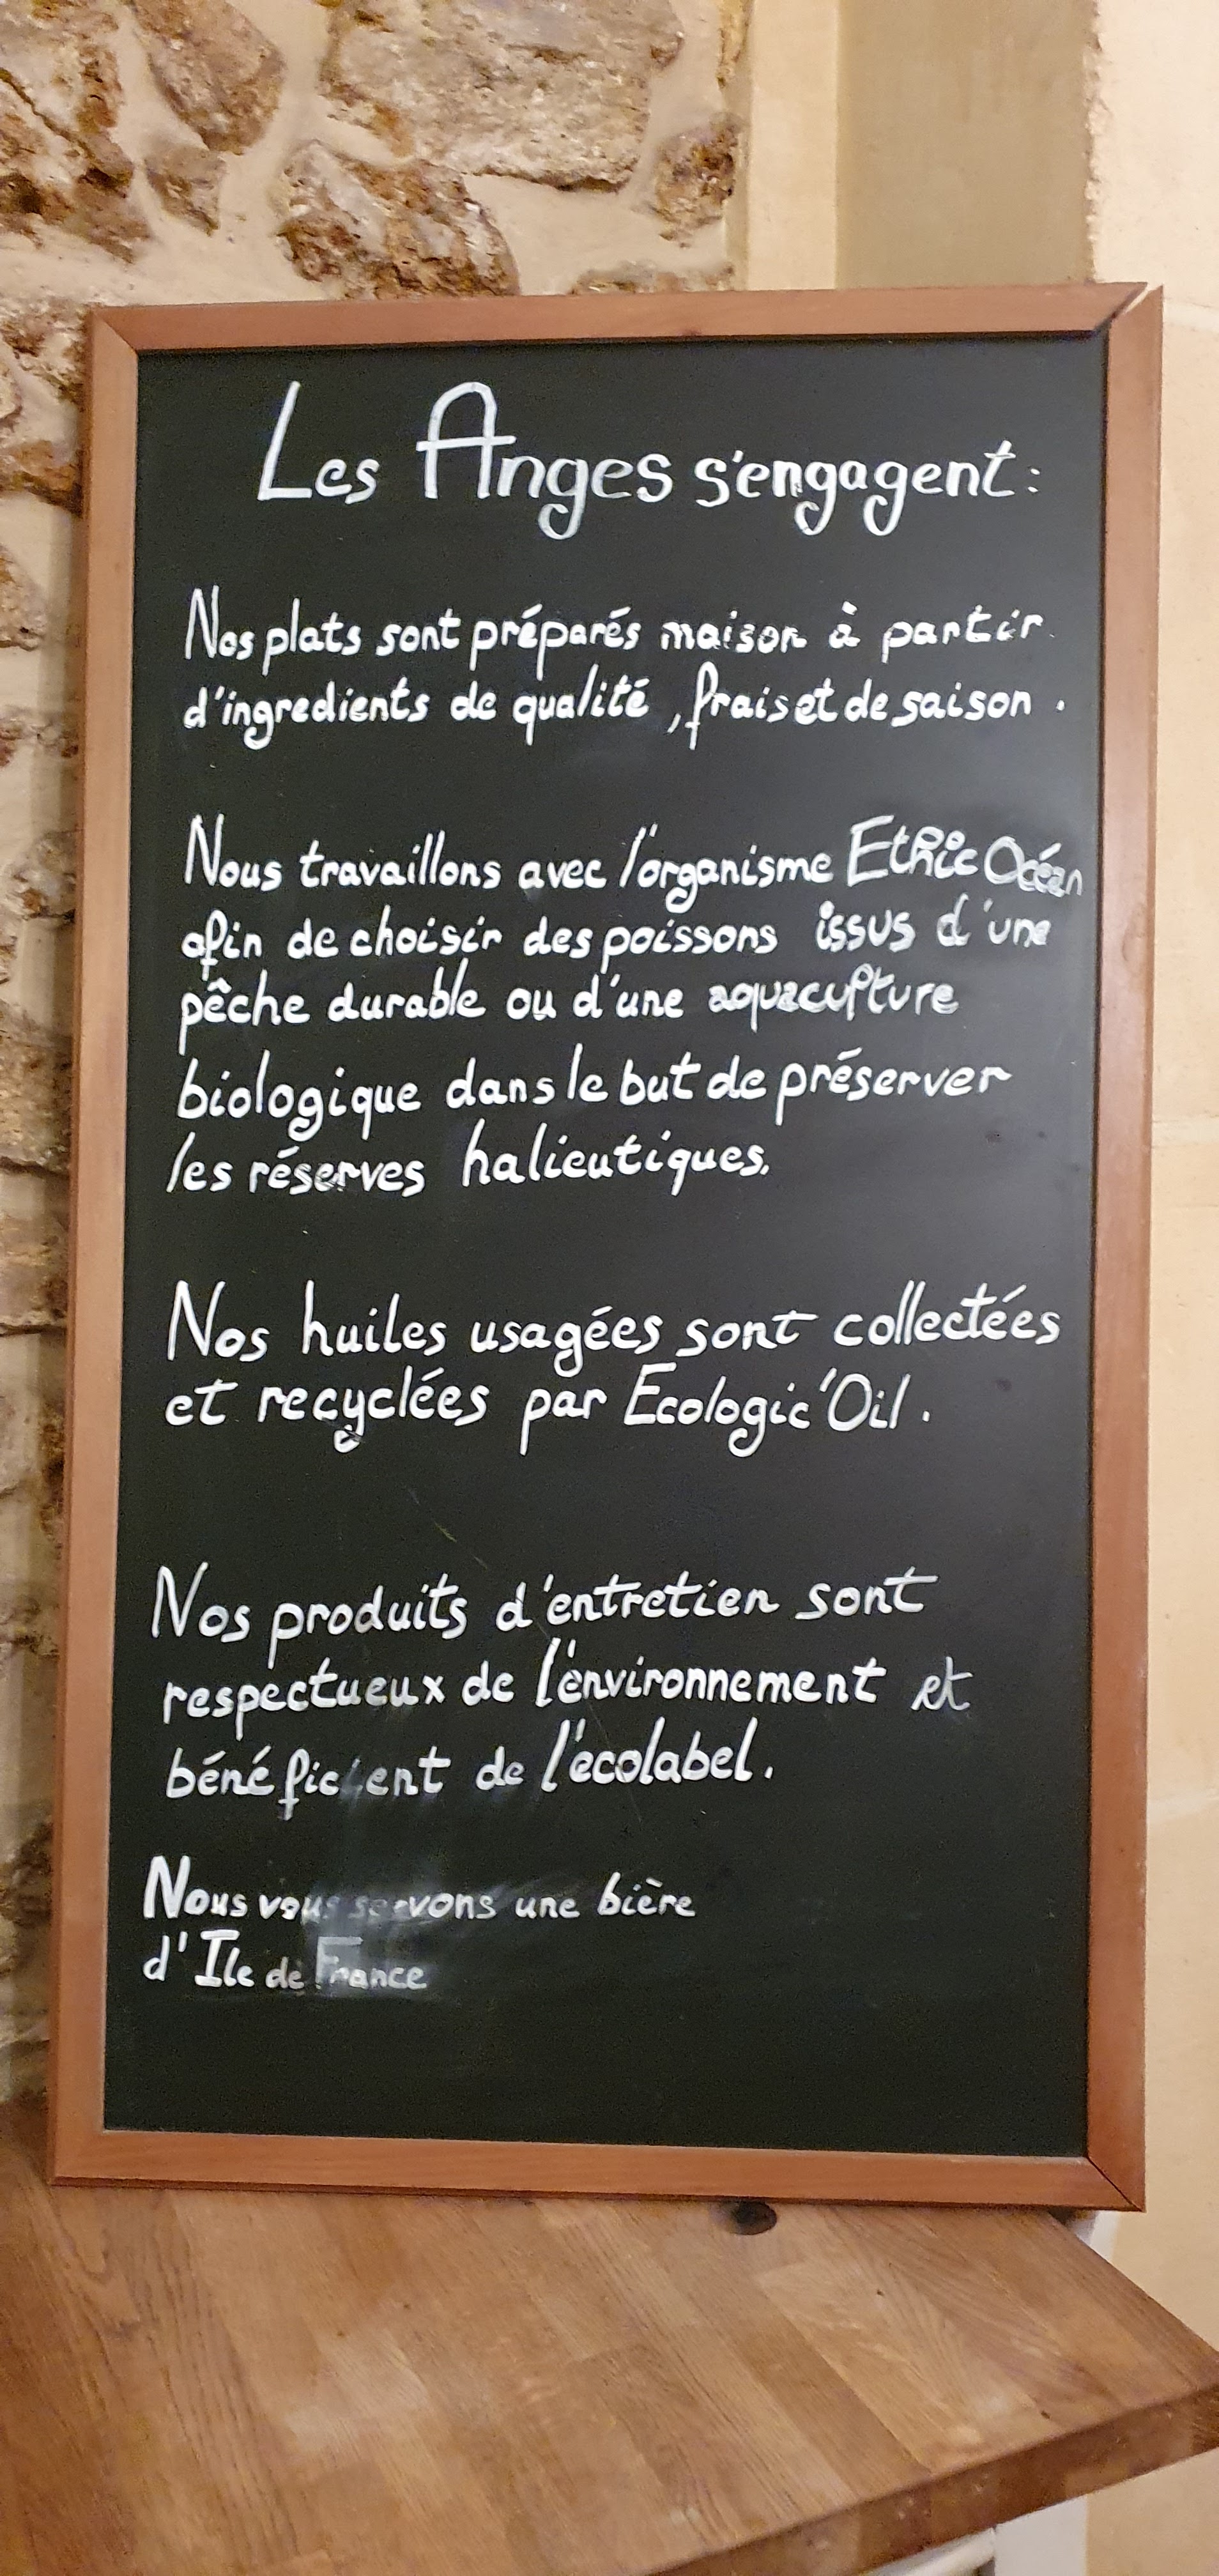 Les Anges s'engagent:
Nos plats sont préparés maison à partir
d'ingredients de qualité, frais et de saison.
Nous travaillons avec l'organisme Ethic Océan
afin de choisir des poissons issus d'une
pêche durable ou d'une aquaculture
biologique dans le but de préserver
les réserves halieutiques.
Nos huiles usagées sont collectées
et recyclées par Ecologic'Oil.
Nos produits d'entretien sont
respectueux de l'environnement et
bénéficient de l'écolabel.
Nous vous servons une bière
d'Ile de France